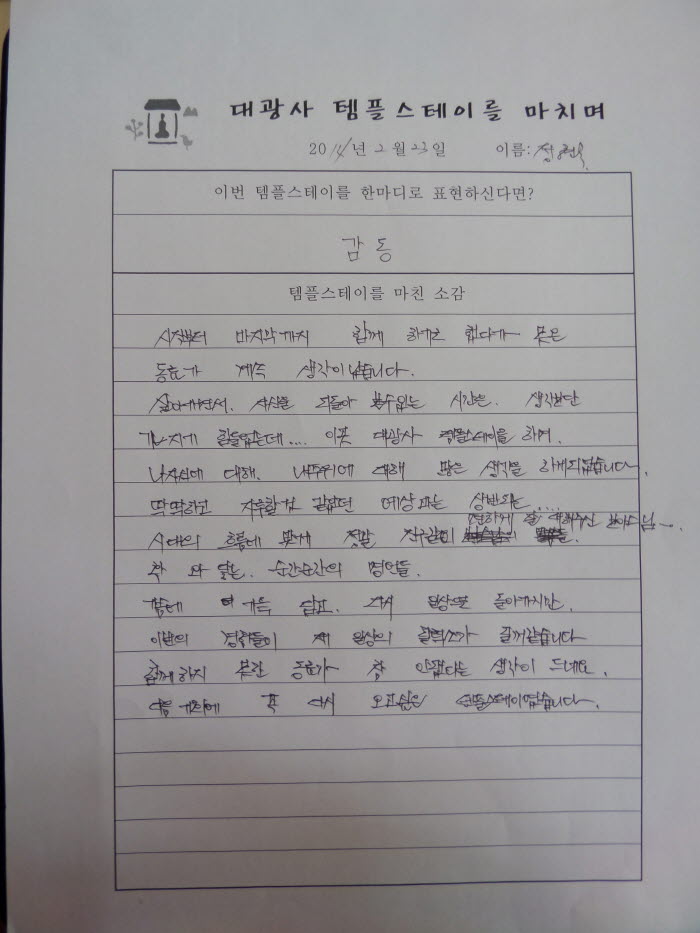 대광사 템플스테이를 마치며
2014년 2월 23일 이름:
이번 템플스테이를 한마디로 표현하신다면?
감동
템플스테이를 마친 소감
시작부터 마지막까지 함께 하기로 했다가 못온
동료가 계속 생각이 났습니다.
살아가면서. 자신을 되돌아 볼수있는 시간은. 생각보단
가지기 힘들었는데.... 이곳 대광사 템플스테이를 하며.
나자신에 대해. 내주위에 대해 많은 생각을 하게되었습니다.
딱딱하고 지루할것 같았던 예상과는 상반되는....
편하게 잘 대해주신 보살님~
시대의 흐름에 맞게 정말 친구같이
확 와 닿는.. 순간순간의 명언들.
다시 일상으로 돌아가지만.
이번의 경험들이 제 일상의 활력소가 될꺼같습니다
함께하지 못한 동료가 참 안됐다는 생각이 드네요.
다음 기회에 꼭 다시 오고싶은 템플스테이였습니다.